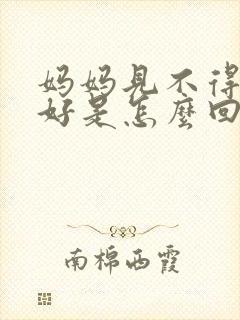 妈妈见不得
好是怎麼回
南棉西霞